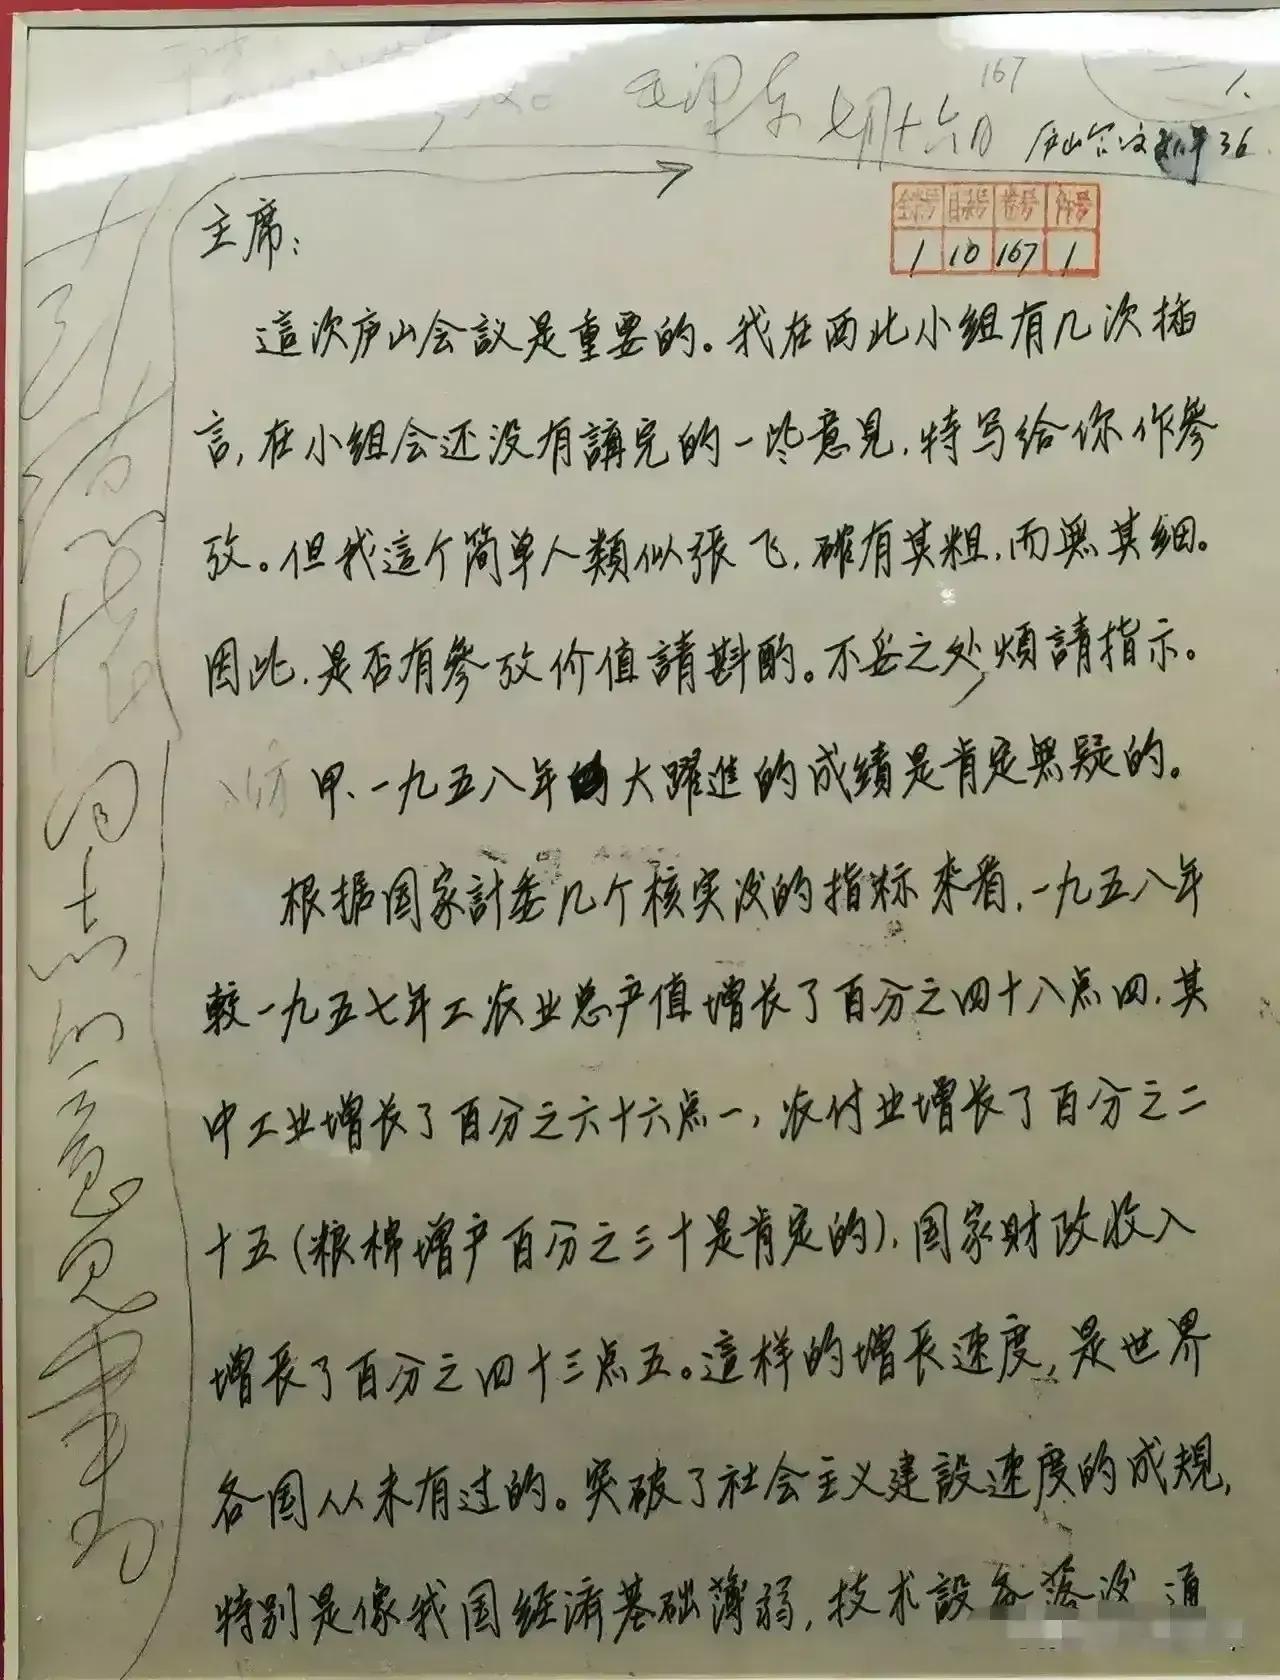 毛泽东 七月十六日
167
1.
庐山会议 36
全宗号 目录号 卷号 件号
1 10 167 1
彭德怀同志的意见书
主席：
這次庐山会議是重要的。我在西北小组有几次插
言，在小组会还没有講完的一些意見，特写给你作參
攷。但我這个简单人類似張飞，確有其粗，而無其細。
因此，是否有參攷价值請斟酌。不妥之处，煩請指示。
甲、一九五八年大躍進的成績是肯定無疑的。
根据国家計委几个核实没的指标来看，一九五八年
較一九五七年工农业总产值增长了百分之四十八点四，其
中工业增长了百分之六十六点一，农付业增长了百分之二
十五（粮棉增产百分之三十是肯定的），国家財政收入
增长了百分之四十三点五。這样的增长速度，是世界
各国从未有过的。突破了社会主义建設速度的成規，
特别是像我国経濟基础薄弱，技术設备落没，通